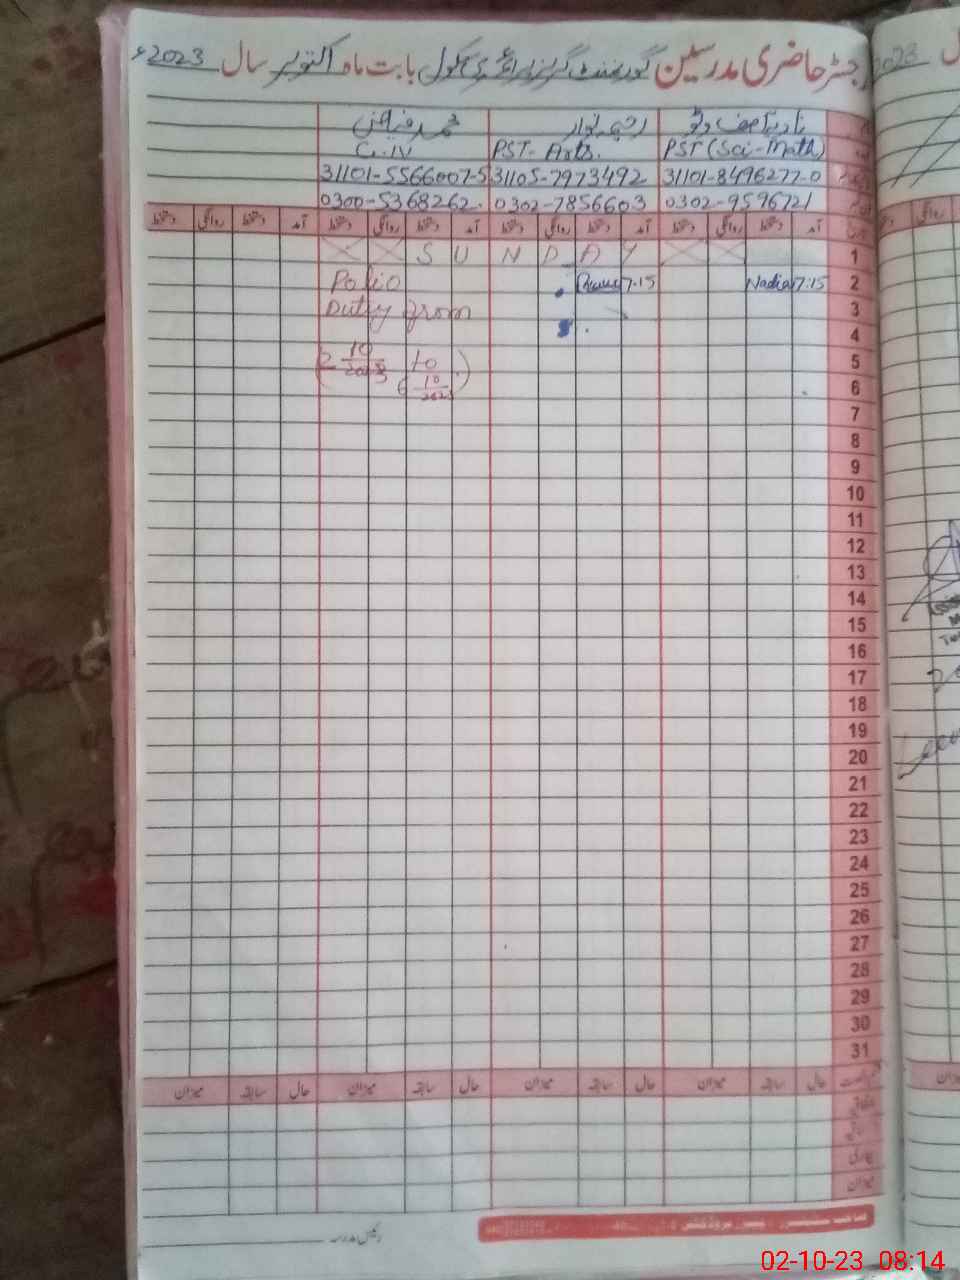 رجسٹر حاضری مدرسین گورنمنٹ گرلز پرائمری سکول بابت ماہ اکتوبر سال 2023ء
نادیہ آصف وٹو
محمد رفیق
PST (Sci-Math) PST-Arts. C-IV
31101-8496277-0 31105-7973492 31101-5566007-5
0302-9596721 0302-7856603 0300-5368262.
آمد دستخط روانگی دستخط آمد دستخط روانگی دستخط آمد دستخط روانگی دستخط آمد دستخط روانگی دستخط
1 SUNDAY
2 7:15 Nadia 7.15 Polio
3 Duty from
4
5 (2 10/2023 to
6 6 10/2023)
7
8
9
10
11
12
13
14
15
16
17
18
19
20
21
22
23
24
25
26
27
28
29
30
31
حال سابقہ میزان حال سابقہ میزان حال سابقہ میزان حال سابقہ میزان
اتفاقی
بیماری
میزان
رئیس مدرسہ
02-10-23 08:14